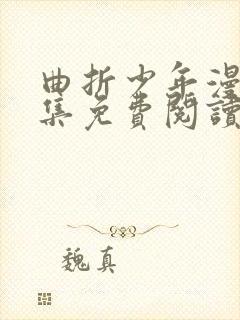 曲折少年漫
集免費閱讀
魏真